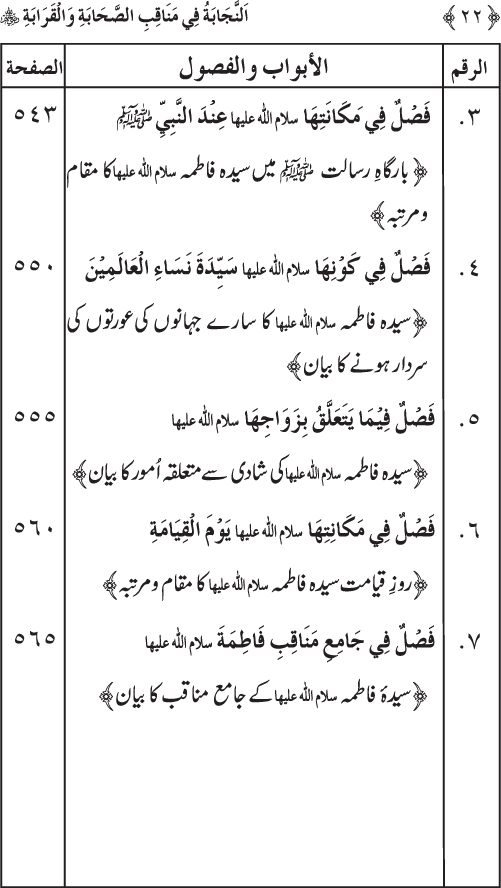 ﴿ ٢٢ ﴾ اَلنَّجَابَةُ فِي مَنَاقِبِ الصَّحَابَةِ وَالْقَرَابَةِ ﷺ
الرقم الأبواب والفصول الصفحة
٣. فَصْلٌ فِي مَكَانَتِهَا سلام اللہ علیہا عِنْدَ النَّبِيِّ ﷺ ٥٤٣
﴿ بارگاہِ رسالت ﷺ میں سیدہ فاطمہ سلام اللہ علیہا کا مقام
ومرتبہ ﴾
٤. فَصْلٌ فِي كَوْنِهَا سلام اللہ علیہا سَيِّدَةَ نَسَاءِ الْعَالَمِيْنَ ٥٥٠
﴿ سیدہ فاطمہ سلام اللہ علیہا کا سارے جہانوں کی عورتوں کی
سردار ہونے کا بیان ﴾
٥. فَصْلٌ فِيْمَا يَتَعَلَّقُ بِزَوَاجِهَا سلام اللہ علیہا ٥٥٥
﴿ سیدہ فاطمہ سلام اللہ علیہا کی شادی سے متعلقہ اُمور کا بیان ﴾
٦. فَصْلٌ فِي مَكَانِتِهَا سلام اللہ علیہا يَوْمَ الْقِيَامَةِ ٥٦٠
﴿ روزِ قیامت سیدہ فاطمہ سلام اللہ علیہا کا مقام ومرتبہ ﴾
٧. فَصْلٌ فِي جَامِعِ مَنَاقِبِ فَاطِمَةَ سلام اللہ علیہا ٥٦٥
﴿ سیدۂ فاطمہ سلام اللہ علیہا کے جامع مناقب کا بیان ﴾